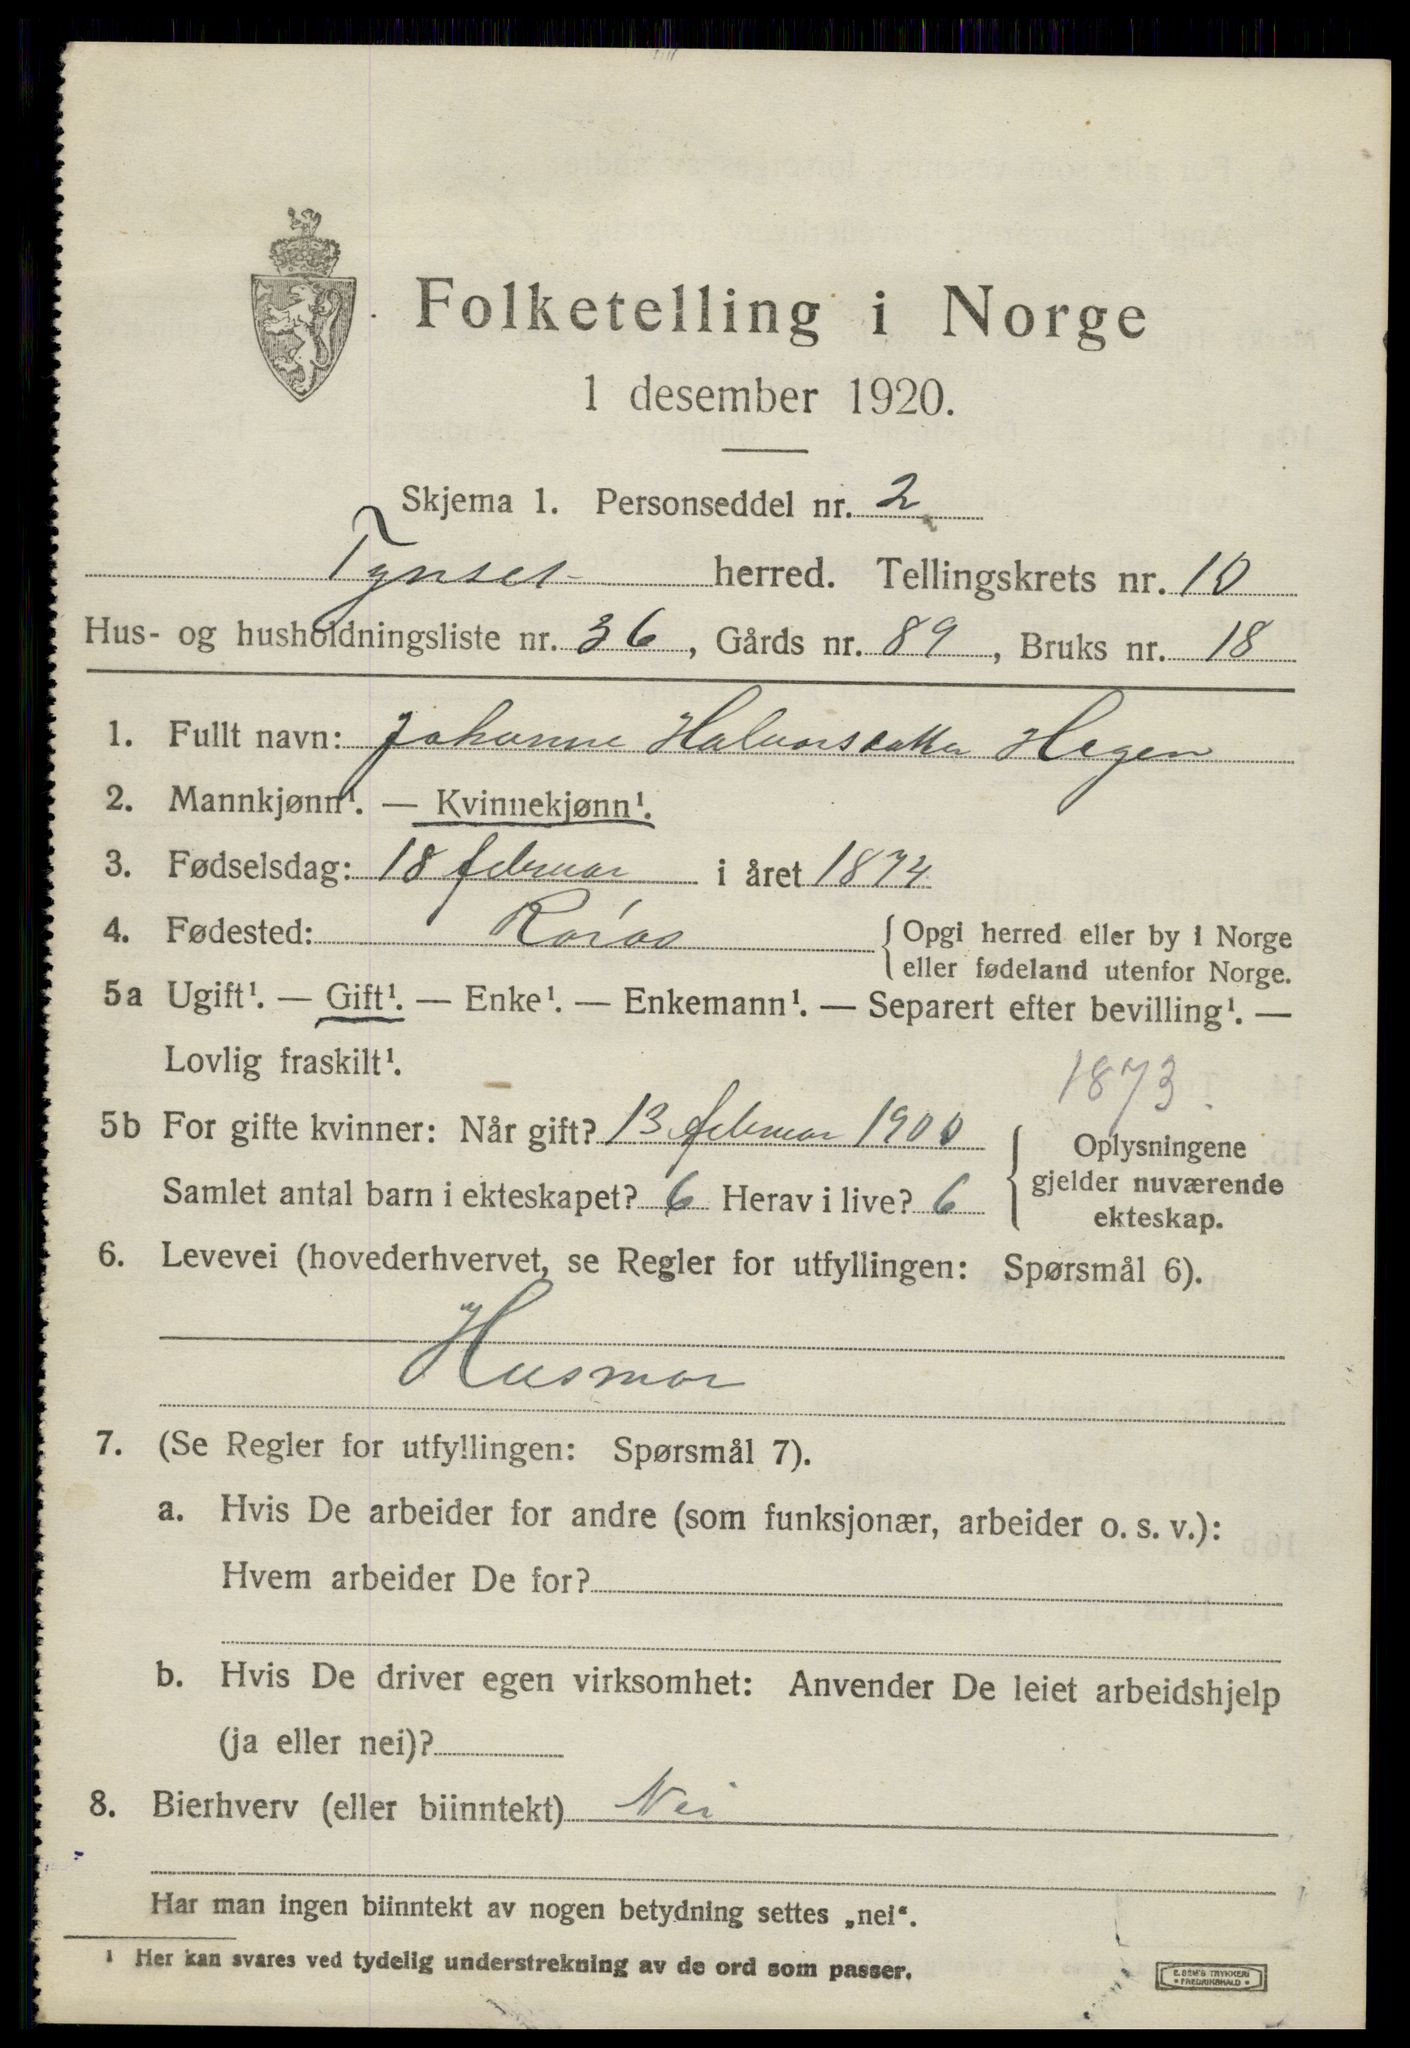 Folketelling i Norge
1 desember 1920.
Skjema 1. Personseddel nr. 2
Tynset herred. Tellingskrets nr. 10
Hus- og husholdningsliste nr. 36, Gårds nr. 89, Bruks nr. 18
1. Fullt navn: Johanne Halvorsdatter Hagen
2. Mannkjønn¹. — Kvinnekjønn¹.
3. Fødselsdag: 18 februar i året 1874
4. Fødested: Røros {Opgi herred eller by i Norge
eller fødeland utenfor Norge.
5a Ugift¹. — Gift¹. — Enke¹. — Enkemann¹. — Separert efter bevilling¹. —
Lovlig fraskilt¹.
1873.
5b For gifte kvinner: Når gift? 13 februar 1900
Samlet antal barn i ekteskapet? 6 Herav i live? 6
{Oplysningene
gjelder nuværende
ekteskap.
6. Levevei (hovederhvervet, se Regler for utfyllingen: Spørsmål 6).
Husmor
7. (Se Regler for utfyllingen: Spørsmål 7).
a. Hvis De arbeider for andre (som funksjonær, arbeider o. s. v.):
Hvem arbeider De for?
b. Hvis De driver egen virksomhet: Anvender De leiet arbeidshjelp
(ja eller nei)?
8. Bierhverv (eller biinntekt) Nei
Har man ingen biinntekt av nogen betydning settes „nei“.
¹ Her kan svares ved tydelig understrekning av de ord som passer.
E. SEM'S TRYKKERI
• FREDRIKSHALD •